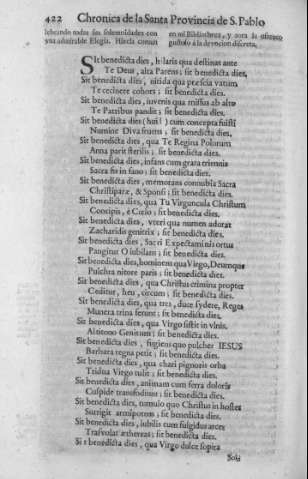 422 Chronica de la Santa Provincia de S. Pablo
lebrando todas sus solemnidades con
vna admirable Elegia. Hizela comun
en mi Bibliotheca, y aora la ofrezco
gustoso à la devocion discreta.
SIt benedicta dies, hilaris qua destinat ante
Te Deus, alta Parens; sit benedicta dies,
Sit benedicta dies, nitida qua præscia vatum
Te cecinere cohors; sit benedicta dies.
Sit benedicta dies, iuvenis qua missus ab alto
Te Patribus pandit; sit benedicta dies.
Sit benedicta dies (hui!) cum concepta fuisti
Numine Diva suo; sit benedicta dies,
Sit benedicta dies, qua Te Regina Polorum
Anna parit sterilis; sit benedicta dies.
Sit benedicta dies, infans cum grata trimnis
Sacra sis in fano; sit benedicta dies.
Sit benedicta dies, memorans connubia Sacra
Christiparæ, & Sponsi; sit benedicta dies.
Sit benedicta dies, qua Tu Virguncula Christum
Concipis, è Cœlo; sit benedicta dies.
Sit benedicta dies, vteri qua numen adorat
Zacharidis genitrix; sit benedicta dies.
Sit benedicta dies, Sacri Expectaminis ortus
Pangitur O iubilam; sit benedicta dies.
Sit benedicta dies, hominem qua Virgo, Deumque
Pulchra nitore paris; sit benedicta dies.
Sit benedicta dies, qua Christus crimina propter
Ceditur, heu, circum; sit benedicta dies.
Sit benedicta dies, qua tres, duce sydere, Reges
Munera trina ferunt; sit benedicta dies.
Sit benedicta dies, qua Virgo sistit in vlnis
Altitono Genitum; sit benedicta dies.
Sit benedicta dies, fugiens quo pulcher IESUS
Barbara regna petit; sit benedicta dies.
Sit benedicta dies, qua chari pignoris orba
Tridua Virgo tulit; sit benedicta dies.
Sit benedicta dies, animam cum ferra doloris
Cuspide transfodinnt; sit benedicta dies.
Sit benedicta dies, tumulo quo Christus in hostes
Surrigit armiporens; sit benedicta dies.
Sit benedicta dies, iubilis cum fulgidus arces
Trasvolat æthereas; sit benedicta dies.
Sit benedicta dies, qua Virgo dulce sopita
Solis